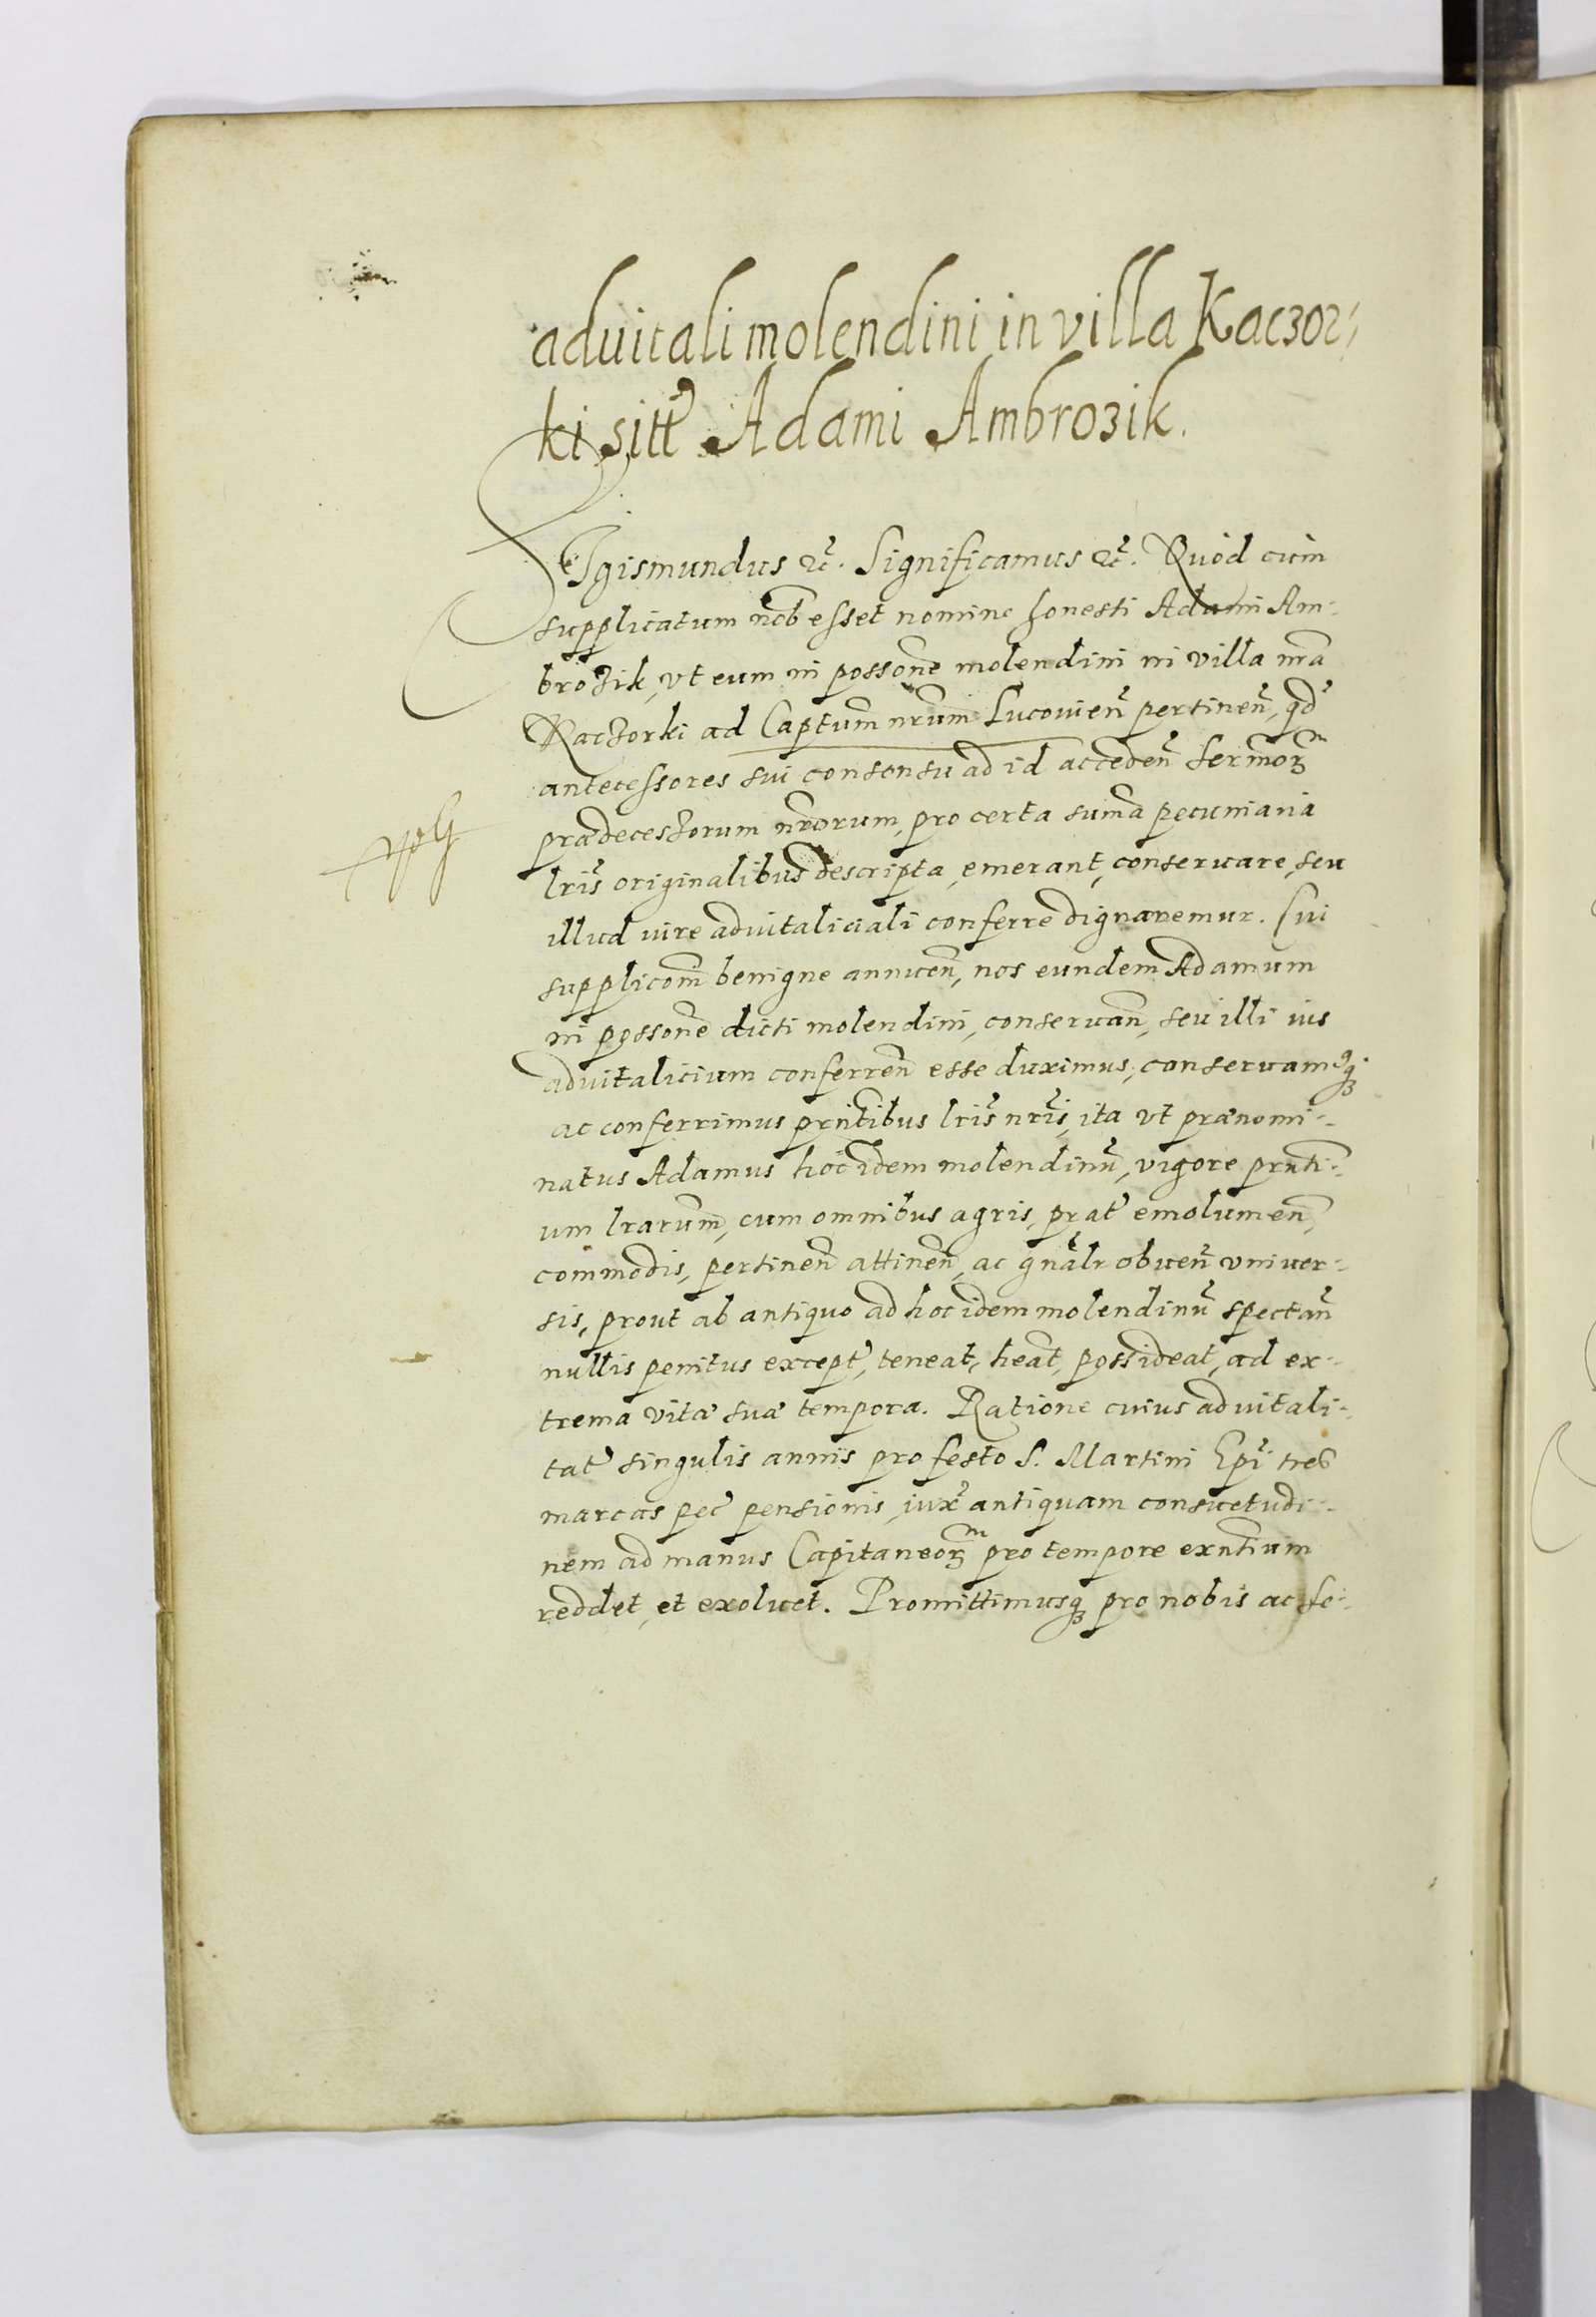 aduitali molendini in villa Kaczor-
ki sitt Adami Ambrozik.
Sigismundus etc. Significamus etc. Quod cum
supplicatum nob esset nomine honesti Adami Am-
brozik, vt eum in possone molendini in villa nra
Kaczorki ad Captum nrum Lucouien pertinen, qd
antecessores sui consensu ad id acceden Sermorum
prædecessorum nrorum, pro certa suma pecuniaria
lris originalibus descripta, emerant, conseruare, seu
illud iure aduitaliciali conferre dignaremur. Cui
supplicom benigne annuen, nos eundem Adamum
in possone dicti molendini, conseruan, seu illi ius
aduitalicium conferren esse duximus, conseruamusq
ac conferrimus prntibus lris nris, ita vt prænomi-
natus Adamus hoc idem molendinu, vigore prnti-
um lrarum, cum omnibus agris, prat emolumen,
commodis, pertinen attinen, ac gnalr obuen vniuer-
sis, prout ab antiquo ad hoc idem molendinu spectan
nullis penitus except, teneat, heat, possideat, ad ex-
trema vitæ suæ tempora. Ratione cuius aduitali-
tat singulis annis pro festo S. Martini Epi tres
marcas pec pensionis, iux antiquam consuetudi-
nem ad manus Capitaneorum pro tempore exntium
reddet, et exoluet. Promittimusq pro nobis ac se-